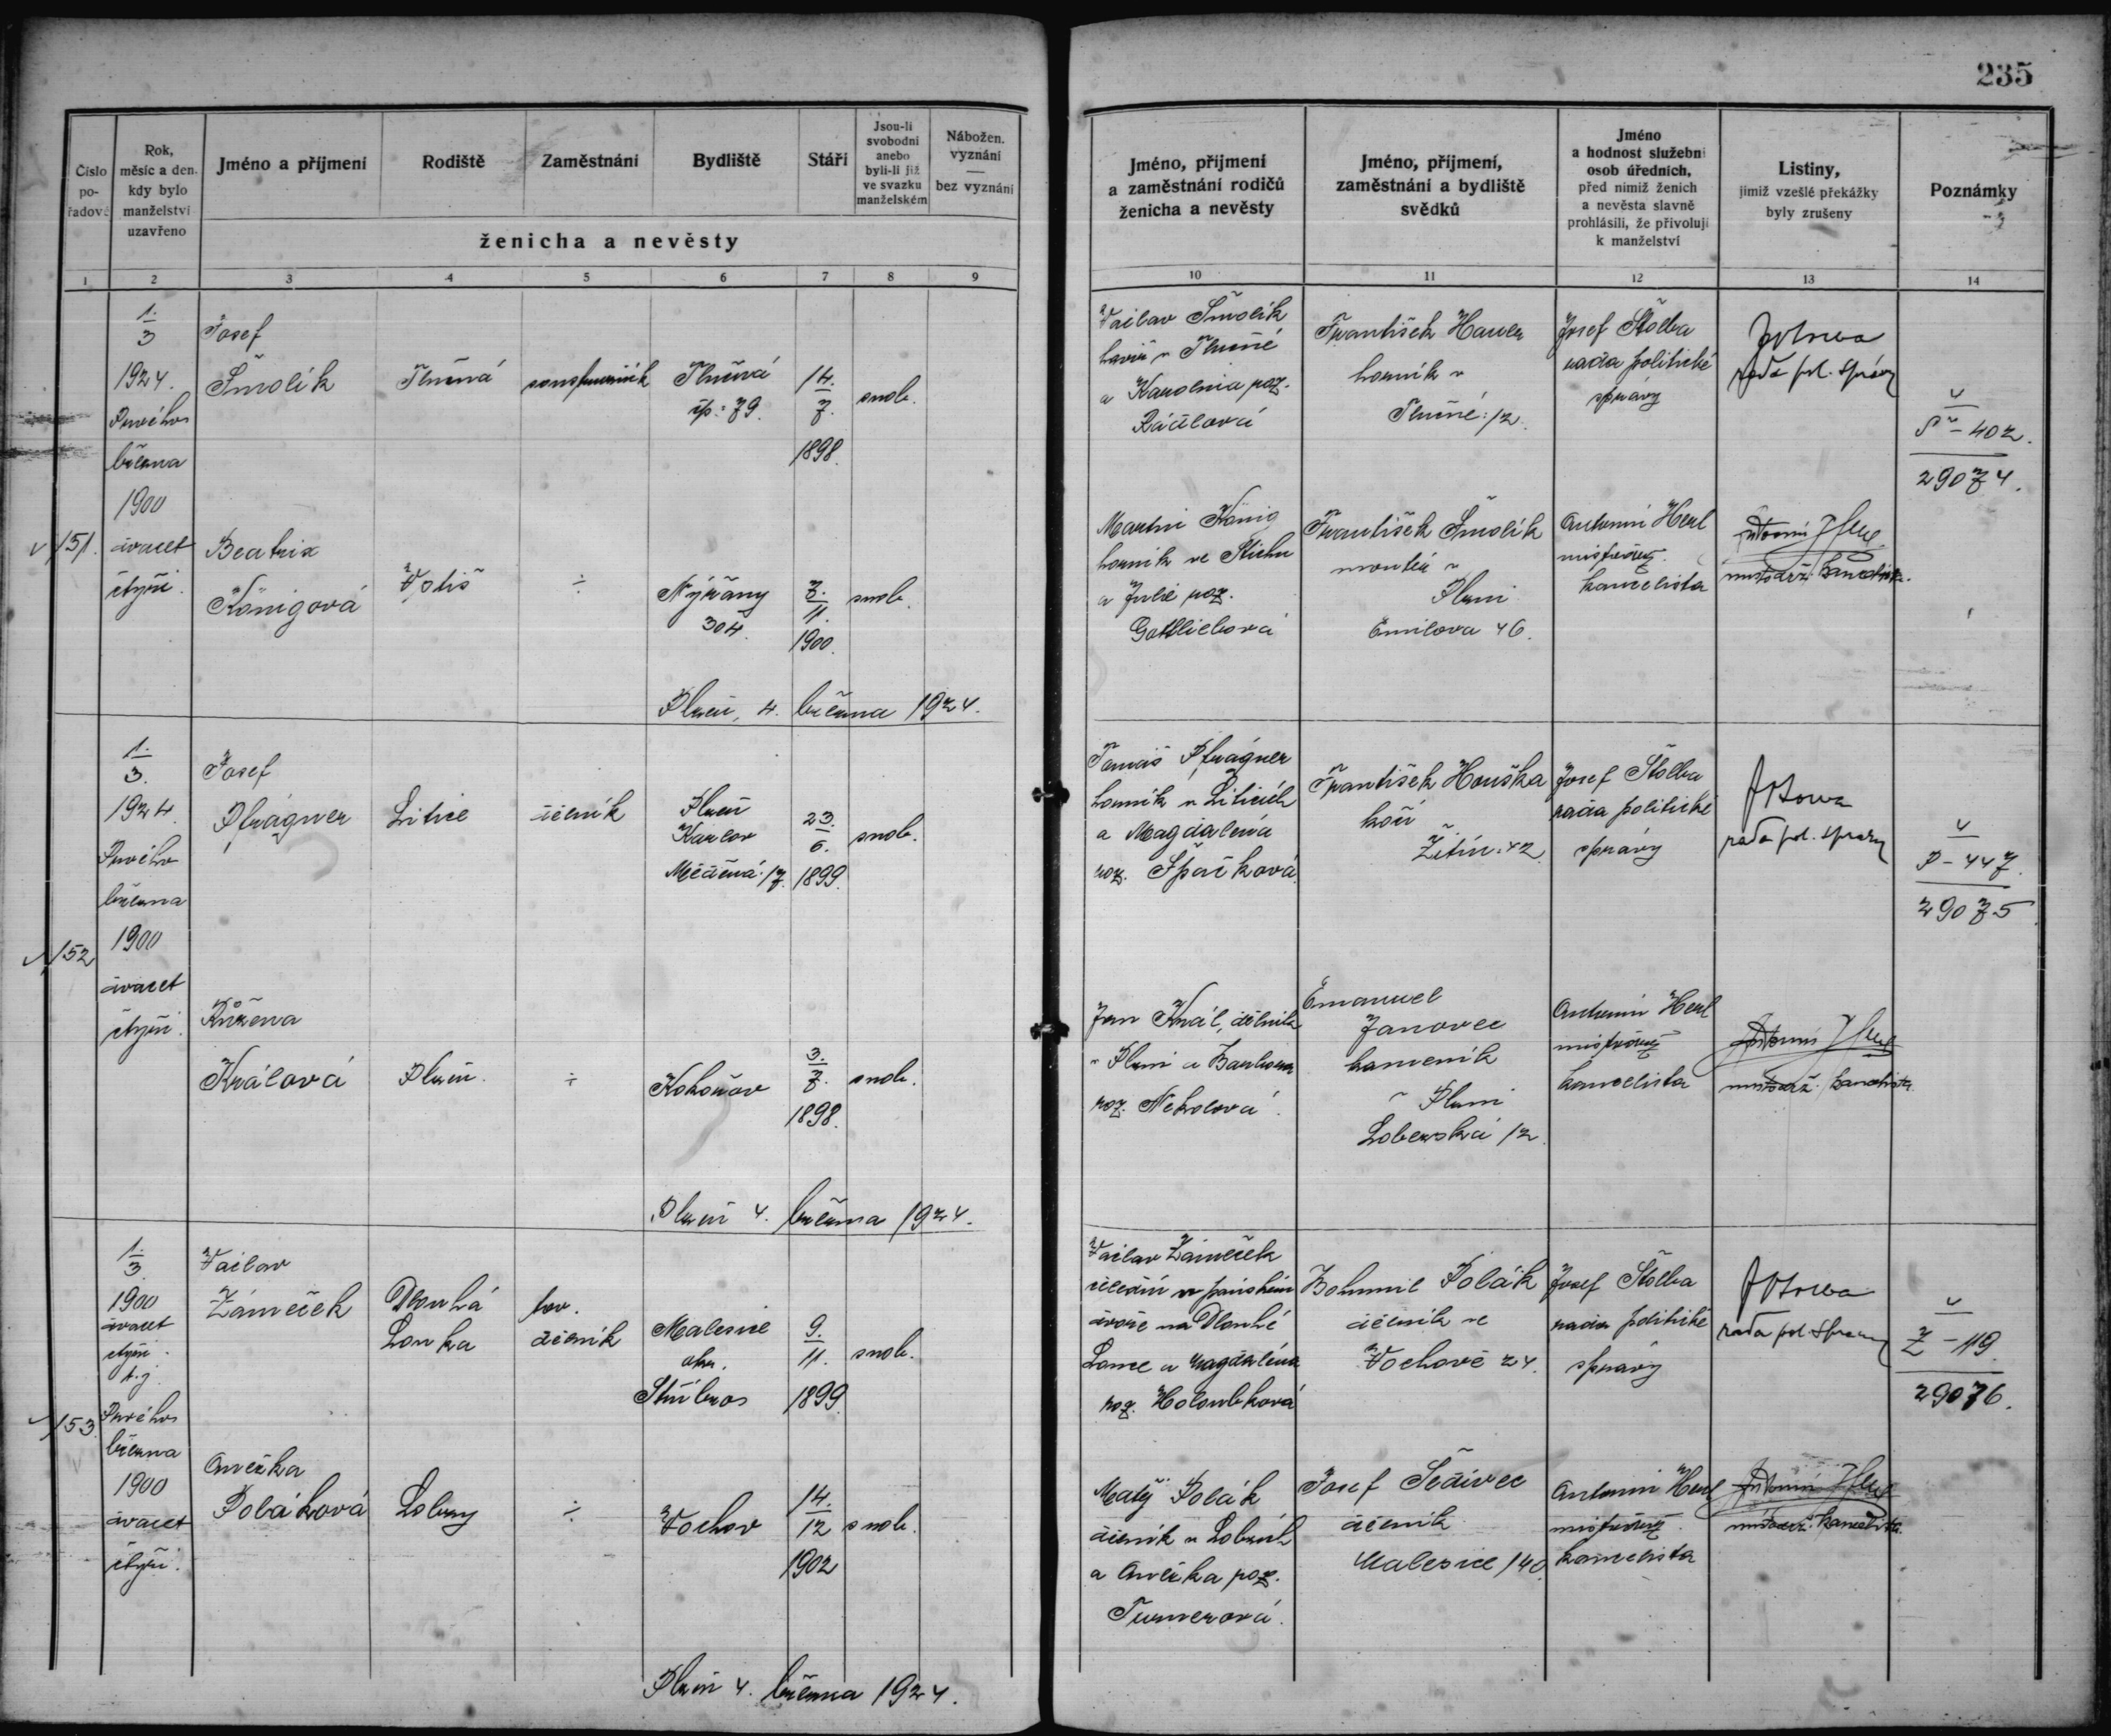 235
Číslo pořadové
Rok, měsíc a den, kdy bylo manželství uzavřeno
Jméno a příjmení
Rodiště
Zaměstnání
Bydliště
Stáří
Jsou-li svobodni anebo byli-li již ve svazku manželském
Nábožen. vyznání — bez vyznání
ženicha a nevěsty
Jméno, příjmení a zaměstnání rodičů ženicha a nevěsty
Jméno, příjmení, zaměstnání a bydliště svědků
Jméno a hodnost služební osob úředních, před nimiž ženich a nevěsta slavně prohlásili, že přivolují k manželství
Listiny, jimiž vzešlé překážky byly zrušeny
Poznámky
1 2 3 4 5 6 7 8 9 10 11 12 13 14
151.
1./3
1924.
Prvého
března
1900
dvacet
čtyři.
Josef
Šmolík
Tlučná
Tlučná
čp.: 79.
14./7.
1898.
svob.
Václav Šmolík
havíř v Tlučné
a Karolina roz.
František Hauer
horník v
Tlučné: 12.
Josef Štolba
rada politické
správy
rada pol. správy
29074.
Beatrix
Königová
÷
Nýřany
304.
7./11.
1900.
svob.
Martin König
horník ve
a Julie roz.
Gottliebová
František Šmolík
montér v
Plzni
Emilova 46.
Antonín Herl
místodrž.
kancelista
Antonín Herl
místodrž. kancelista.
Plzeň, 4. března 1924.
152
1./3.
1924.
Prvého
března
1900
dvacet
čtyři.
Josef
Pfrágner
Litice
dělník
Plzeň
Karlov
17.
23./6.
1899.
svob.
Tomáš Pfrágner
horník v Liticích
a Magdalena
roz. Špačková.
František Houška
kočí
Žitín: 42.
Josef Štolba
rada politické
správy
rada pol. správy
P – 447.
29075
Růžena
Králová
Plzeň.
÷
Kokořov
3./7.
1898.
svob.
Jan Král, dělník
v Plzni a Barbora
roz. Nekolová.
Emanuel
Janovec
kameník
v Plzni
Lobezská 12.
Antonín Herl
místodrž.
kancelista
Antonín Herl
místodrž. kancelista
Plzeň 4. března 1924.
153.
1./3.
1900
dvacet
čtyři.
t.j.
Prvého
března
1900
dvacet
čtyři.
Václav
Zámeček
Dlouhá
Louka
tov.
dělník
Malesice
okr.
Stříbro
9./11.
1899.
svob.
Václav Zámeček
čeledín v panském
dvoře na Dlouhé
Louce a Magdaléna
roz. Holoubková
Bohumil Polák
dělník ve
Vochově 24.
Josef Štolba
rada politické
správy
rada pol. správy
Z – 119.
29076.
Anežka
Poláková
Lobzy
÷
Vochov
14./12
1902
svob.
Matěj Polák
dělník v Lobzích
a Anežka roz.
Turnerová.
Josef Šedivec
dělník
Malesice 140.
Antonín Herl
místodrž.
kancelista
Antonín Herl
místodrž. kancelista
Plzeň 4. března 1924.